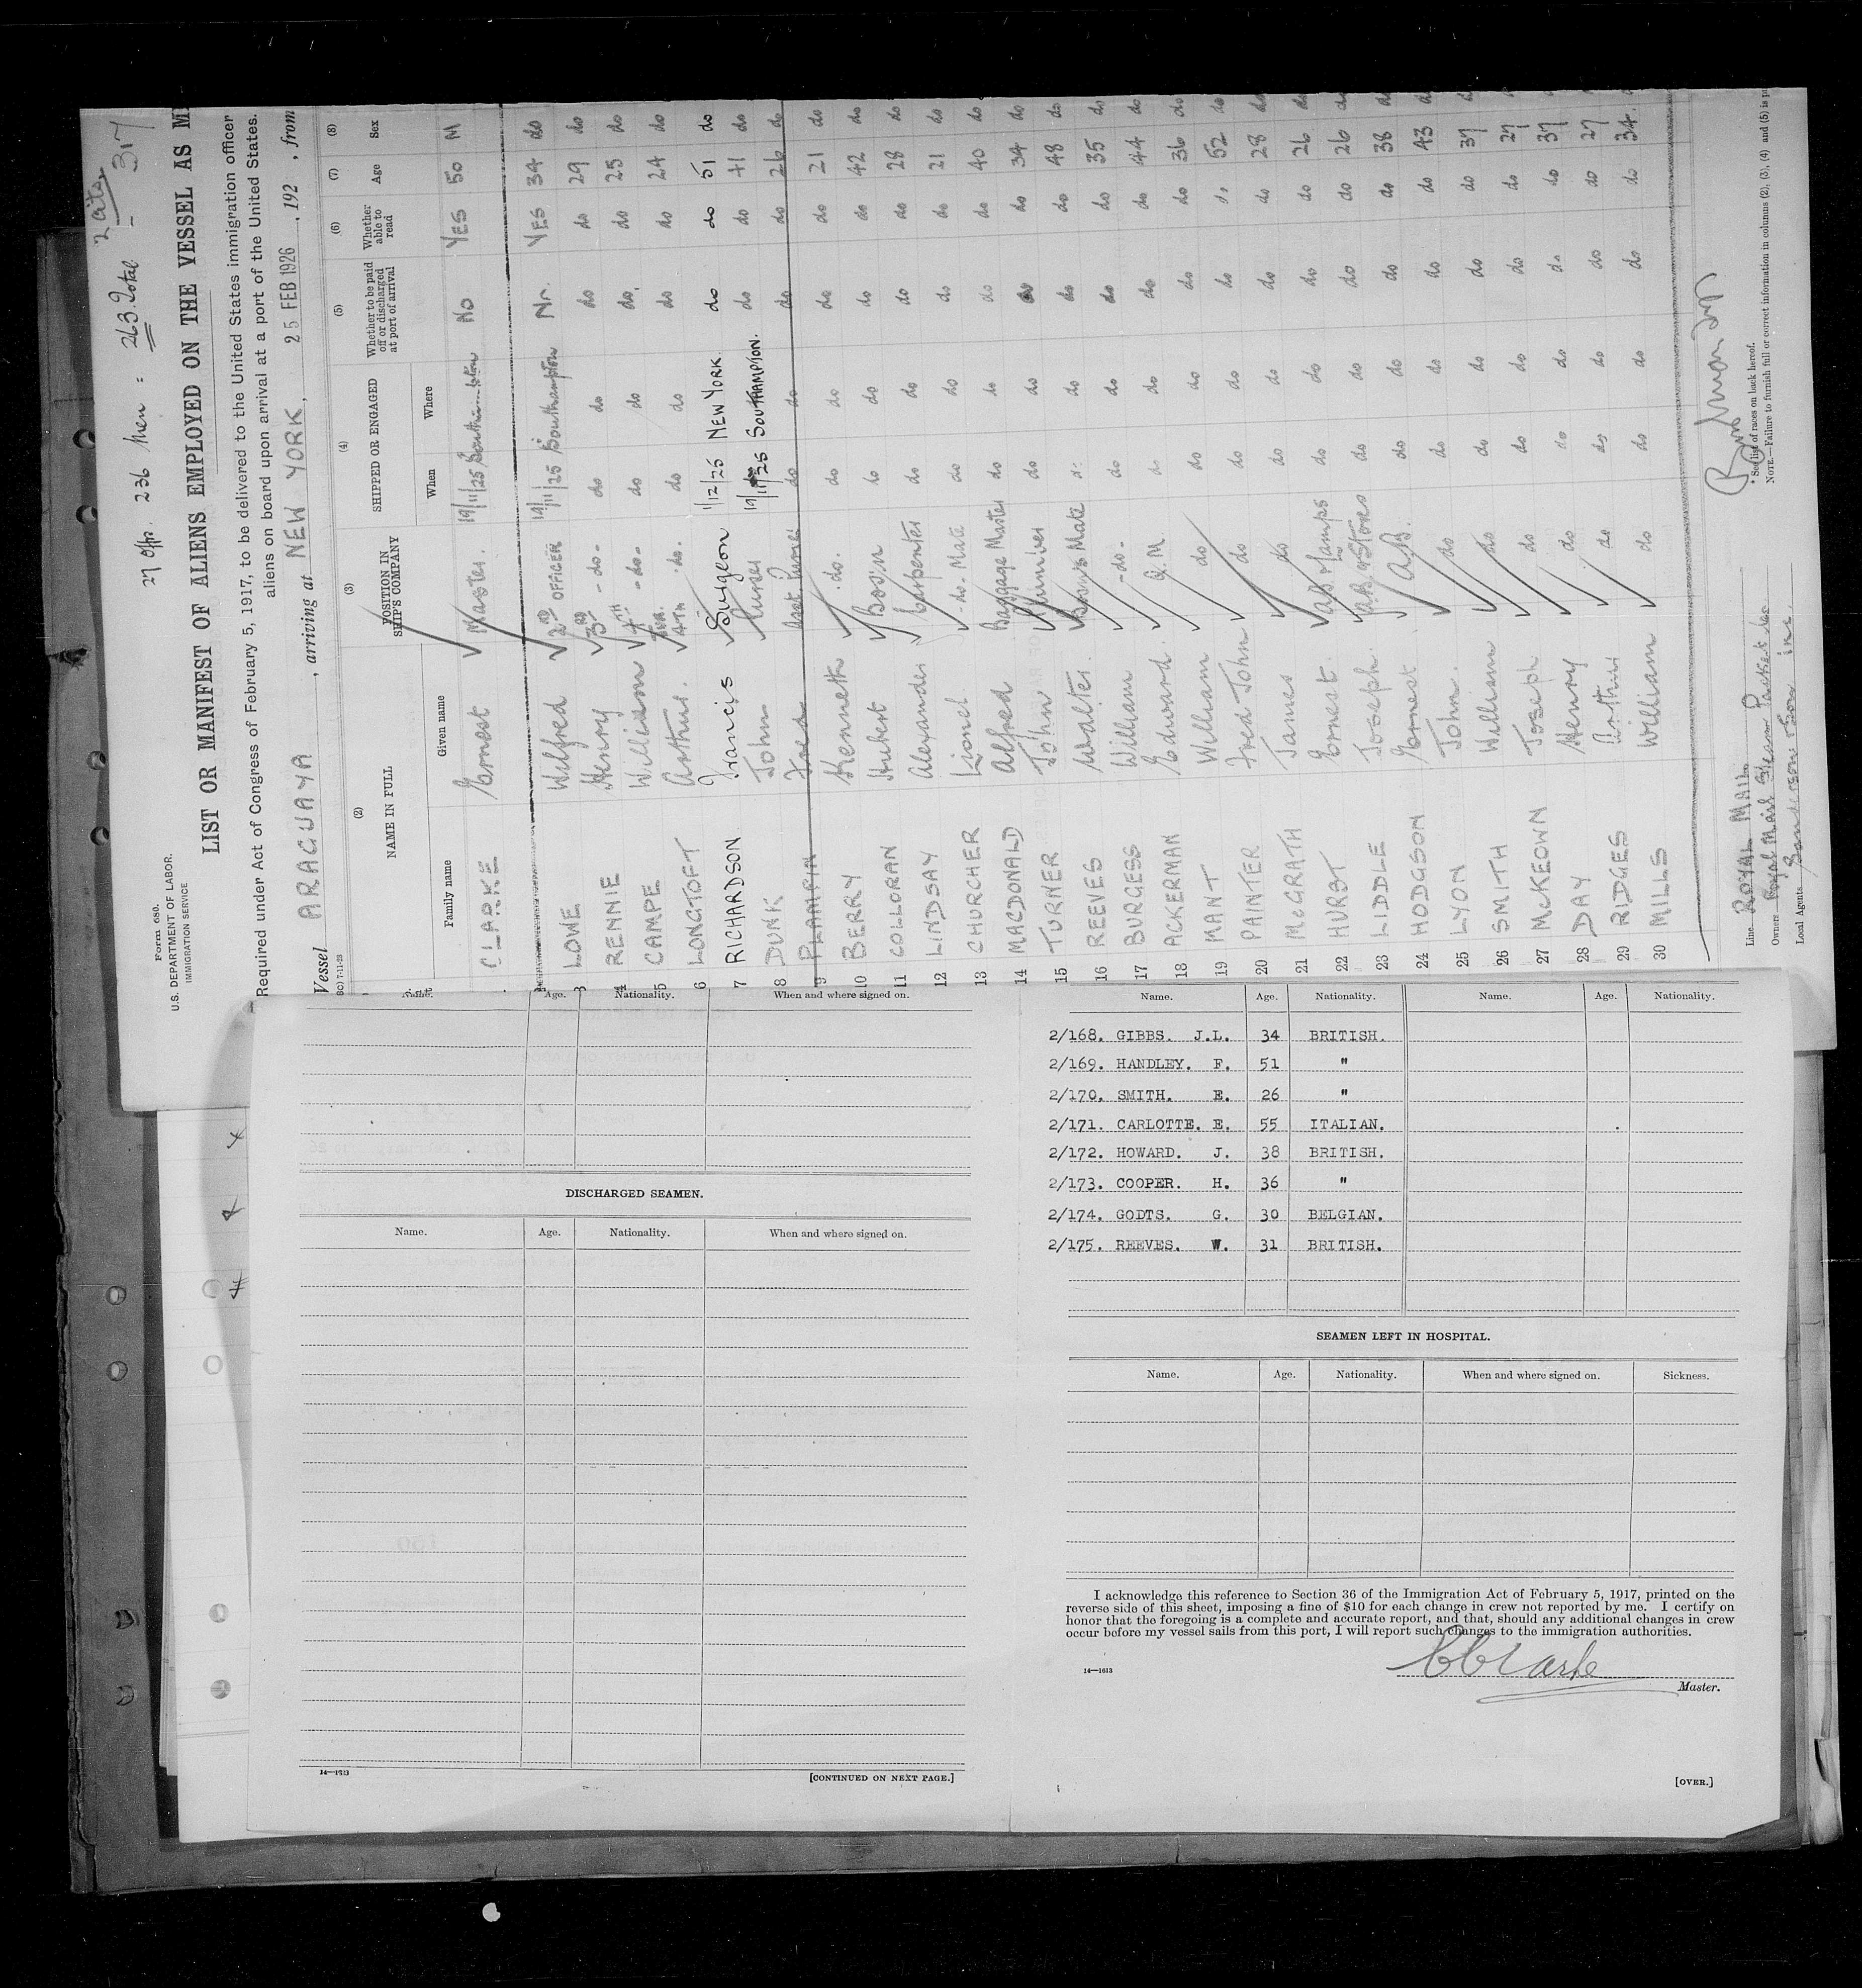 27 Offrs. 236 Men = 263 Total
317
Form 680.
U.S. DEPARTMENT OF LABOR.
IMMIGRATION SERVICE
LIST OR MANIFEST OF ALIENS EMPLOYED ON THE VESSEL AS M
Required under Act of Congress of February 5, 1917, to be delivered to the United States immigration officer
aliens on board upon arrival at a port of the United States.
Vessel ARAGUAYA, arriving at NEW YORK, 25 FEB 1926, 192 , from
(2) (3) (4) (5) (6) (7) (8)
NAME IN FULL POSITION IN SHIP'S COMPANY SHIPPED OR ENGAGED Whether to be paid off or discharged at port of arrival Whether able to read Age Sex
Family name Given name When Where
CLARKE Ernest Master. 19/11/25 Southampton No YES 50 M
LOWE Wilfred 2ND OFFICER 19/11/25 Southampton No. YES 34 do
3 RENNIE Henry 3RD -do- do do do do 29 do
4 CAMPE William 4TH -do- do do do. do 25 do
5 LONGTOFT Arthur. JUNR. 4TH .do. do do do do 24 do
6 RICHARDSON Francis Surgeon 1/12/25 NEW YORK do do 51 do
7 DUNK John Purser 19/11/25 SOUTHAMPTON. do do 41 do
8 PLAMPIN Fred Asst. Purser do do do do 26 do
9 BERRY Kenneth .do. do do do do 21 do
10 COLLORAN Hubert Bosn do do do do 42 do
11 LINDSAY Alexander Carpenter do do do do 28 do
12 CHURCHER Lionel -do- Mate do do do do 21 do
13 MACDONALD Alfred Baggage Master do do do do 40 do
14 TURNER John Plumber do do do do 34 do
15 REEVES Walter. Bosn's Mate do do do do 48 do
16 BURGESS William -do- do do do do 35 do
17 ACKERMAN Edward. Q.M. do do do do 44 do
18 MANT William do do do do do 36 do
19 PAINTER Fred John do do do do do 52 do
20 McGRATH James do do do do do 28 do
21 HURST Ernest. AB & Lamps do do do do 26 do
22 LIDDLE Joseph. AB. & Stores do do do do 26 do
23 HODGSON Ernest A.B. do do do do 38 do
24 LYON John. do do do do do 43 do
25 SMITH William do do do do do 37 do
26 McKEOWN Joseph do do do do do 27 do
27 DAY Henry do do do do do 37 do
28 RIDGES Arthur do do do do do 27 do
29 MILLS William do do do do do 34. do
30
Line ROYAL MAIL
Owners Royal Mail Steam Packet Co
Local Agents Sanderson & Son inc.
* See list of races on back hereof.
NOTE.—Failure to furnish full or correct information in columns (2), (3), (4) and (5) is pu
Name. Age. Nationality. When and where signed on.
DISCHARGED SEAMEN.
Name. Age. Nationality. When and where signed on.
14—1613
[CONTINUED ON NEXT PAGE.]
Name. Age. Nationality. Name. Age. Nationality.
2/168. GIBBS. J.L. 34 BRITISH.
2/169. HANDLEY. F. 51 "
2/170. SMITH. E. 26 "
2/171. CARLOTTE. E. 55 ITALIAN.
2/172. HOWARD. J. 38 BRITISH.
2/173. COOPER. H. 36 "
2/174. GODTS. G. 30 BELGIAN.
2/175. REEVES. W. 31 BRITISH.
SEAMEN LEFT IN HOSPITAL.
Name. Age. Nationality. When and where signed on. Sickness.
I acknowledge this reference to Section 36 of the Immigration Act of February 5, 1917, printed on the
reverse side of this sheet, imposing a fine of $10 for each change in crew not reported by me. I certify on
honor that the foregoing is a complete and accurate report, and that, should any additional changes in crew
occur before my vessel sails from this port, I will report such changes to the immigration authorities.
14—1613
E Clarke
Master.
[OVER.]